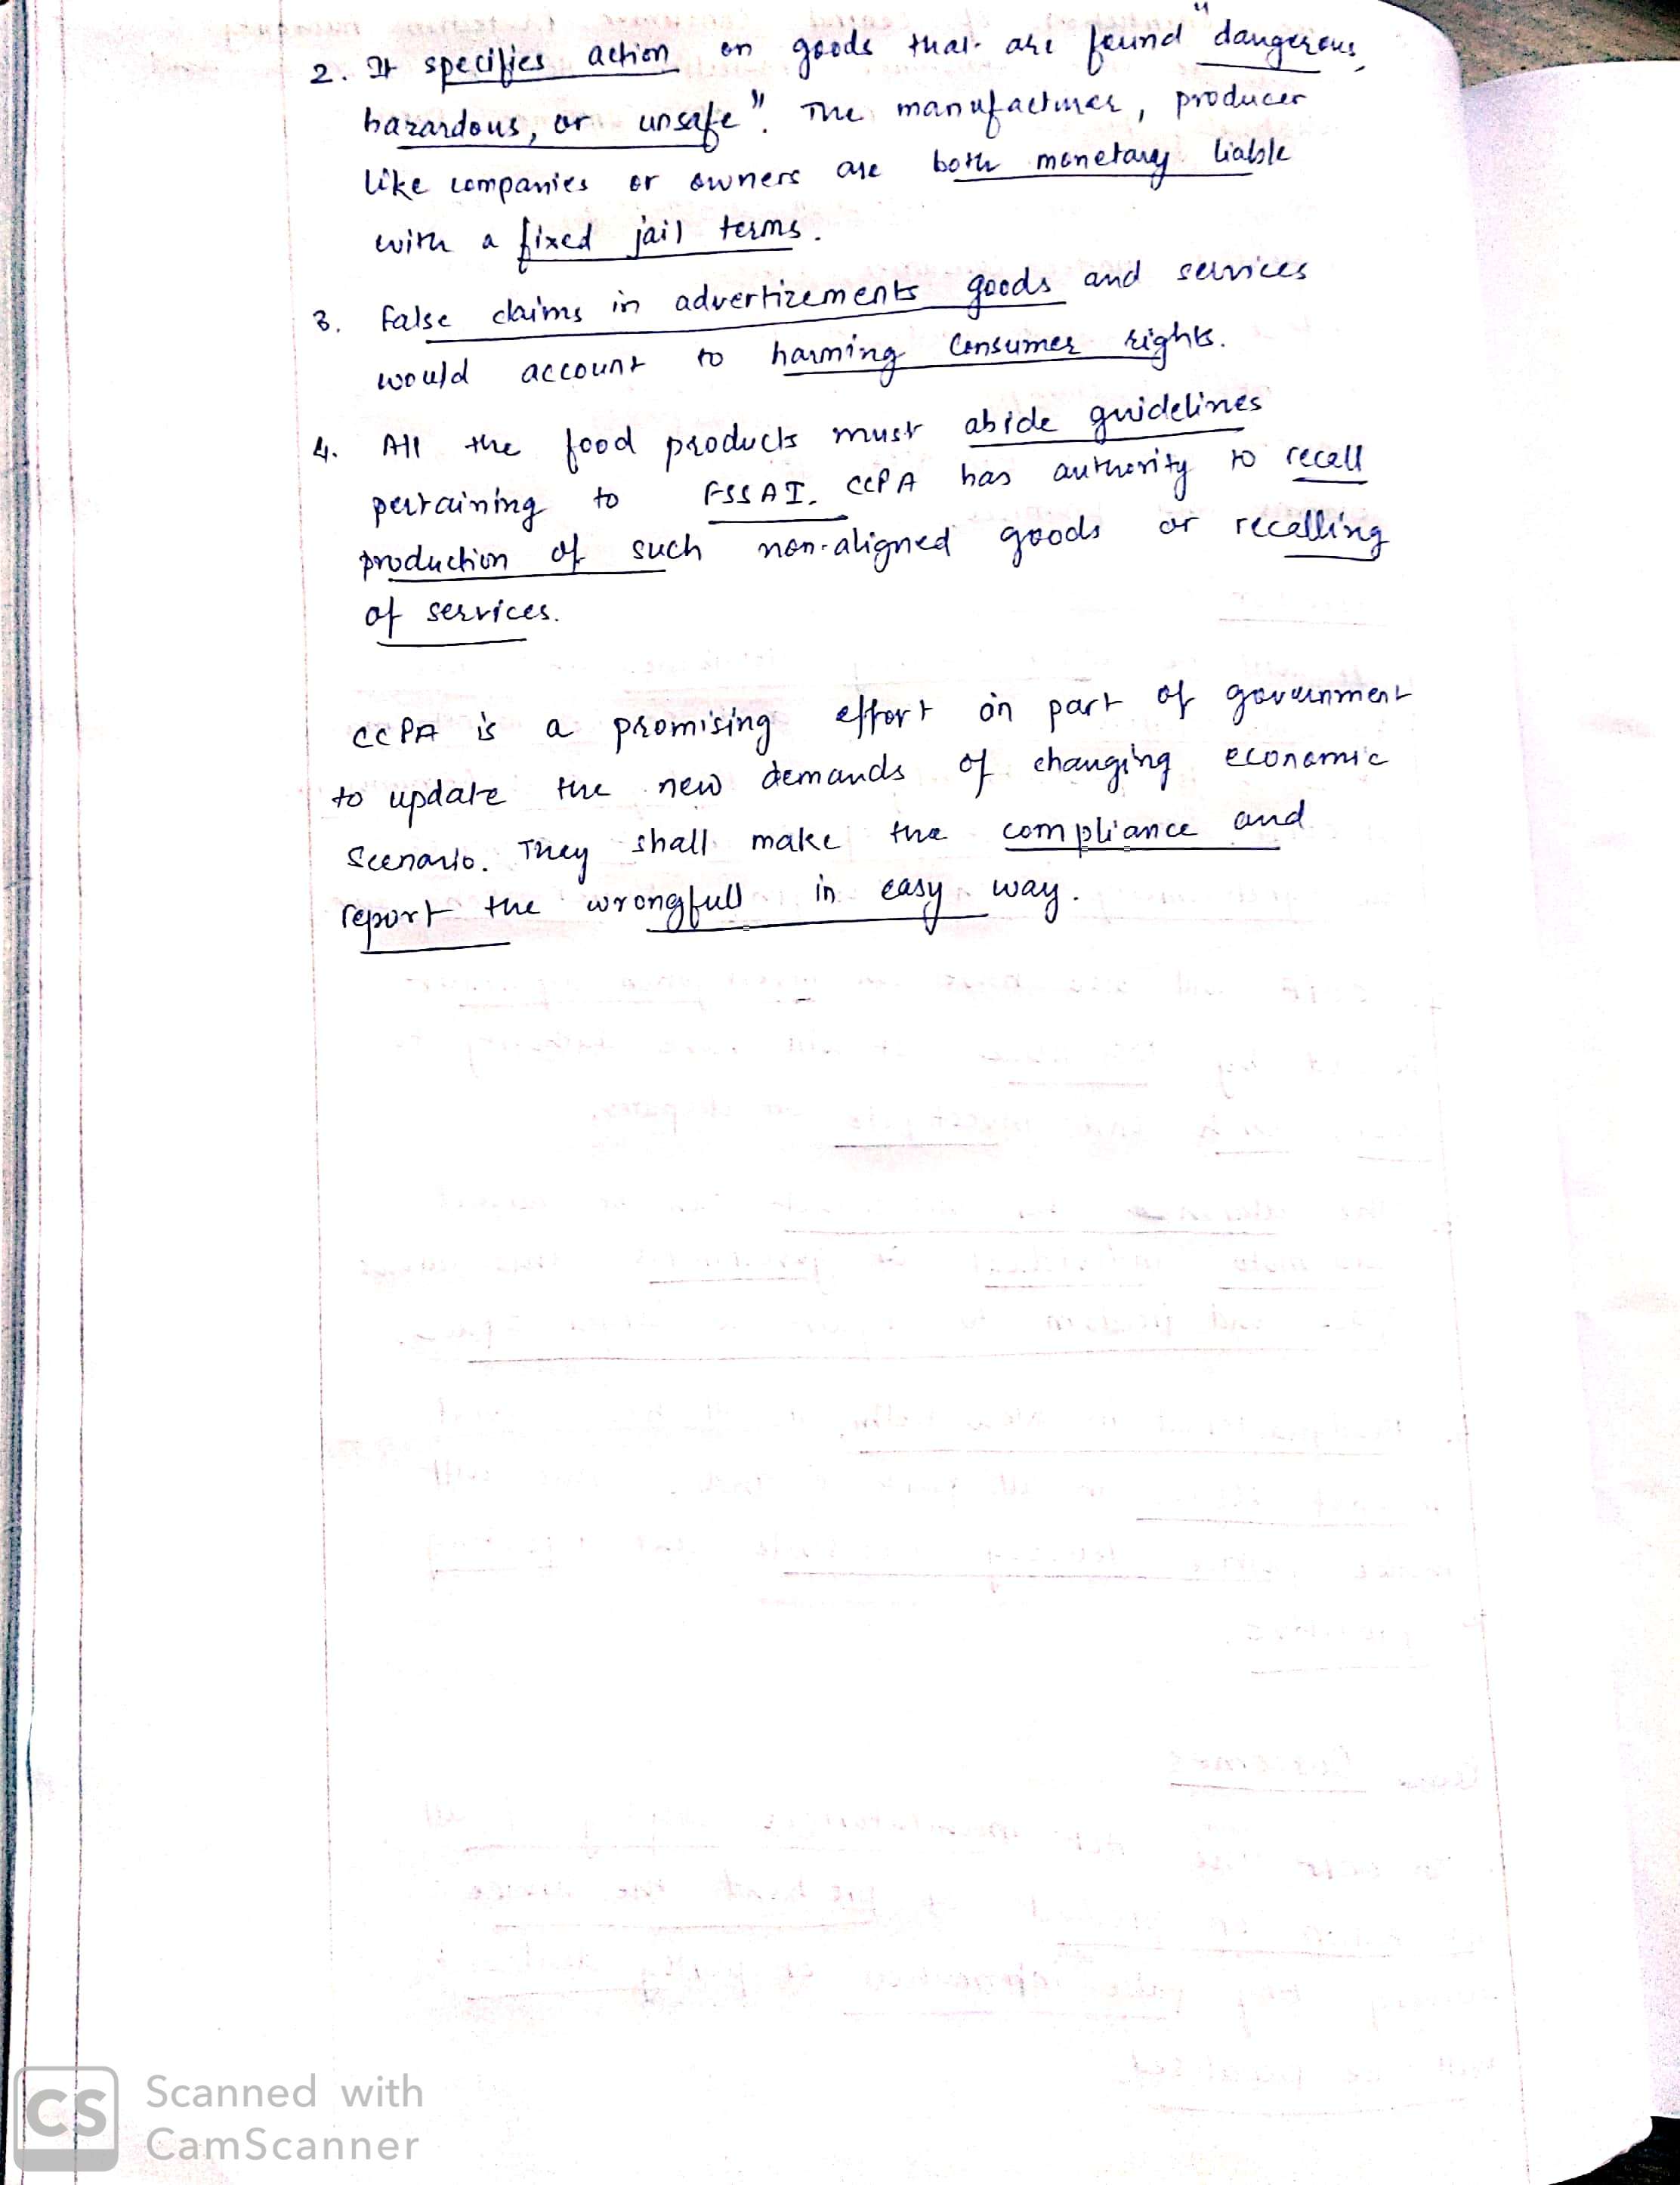 2. It specifies action on goods that are found "dangerous,
hazardous, or unsafe". The manufacturer, producer
like companies or owners are both monetary liable
with a fixed jail terms.
3. False claims in advertizements goods and services
would account to harming consumer rights.
4. All the food products must abide guidelines
pertaining to FSSAI. CCPA has authority to recall
production of such non-aligned goods or recalling
of services.
CCPA is a promising effort on part of government
to update the new demands of changing economic
scenario. They shall make the compliance and
report the wrongfull in easy way.
CS Scanned with
CamScanner